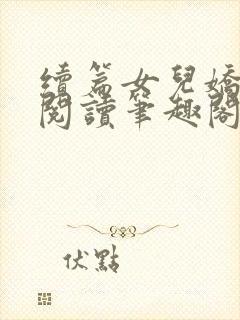 續篇女兒嬌
閱讀筆趣閣
伏點